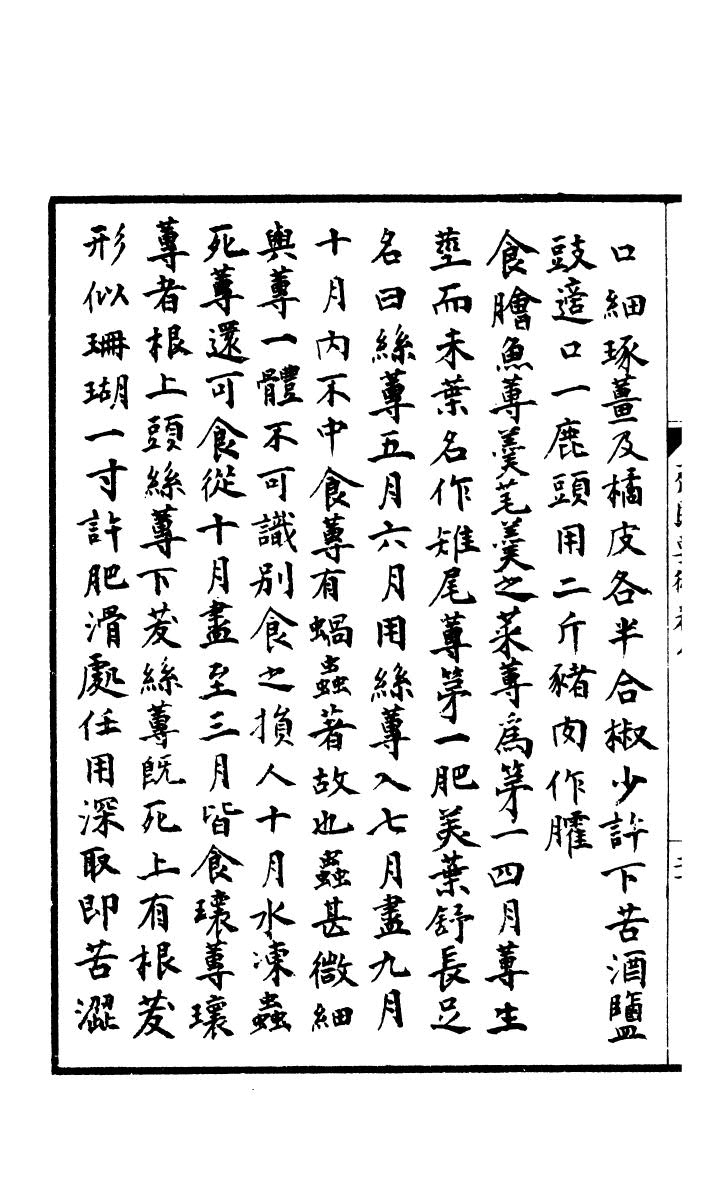 口細琢薑及橘皮各半合椒少許下苦酒鹽
豉適口一鹿頭用二斤豬肉作臛
食膾魚蓴羹芼羹之菜蓴爲第一四月蓴生
莖而未葉名作雉尾蓴第一肥美葉舒長足
名曰絲蓴五月六月用絲蓴入七月盡九月
十月內不中食蓴有蝸蟲著故也蟲甚微細
與蓴一體不可識別食之損人十月水凍蟲
死蓴還可食從十月盡至三月皆食瓌蓴瓌
蓴者根上頭絲蓴下茇絲蓴既死上有根茇
形似珊瑚一寸許肥滑處任用深取即苦澀